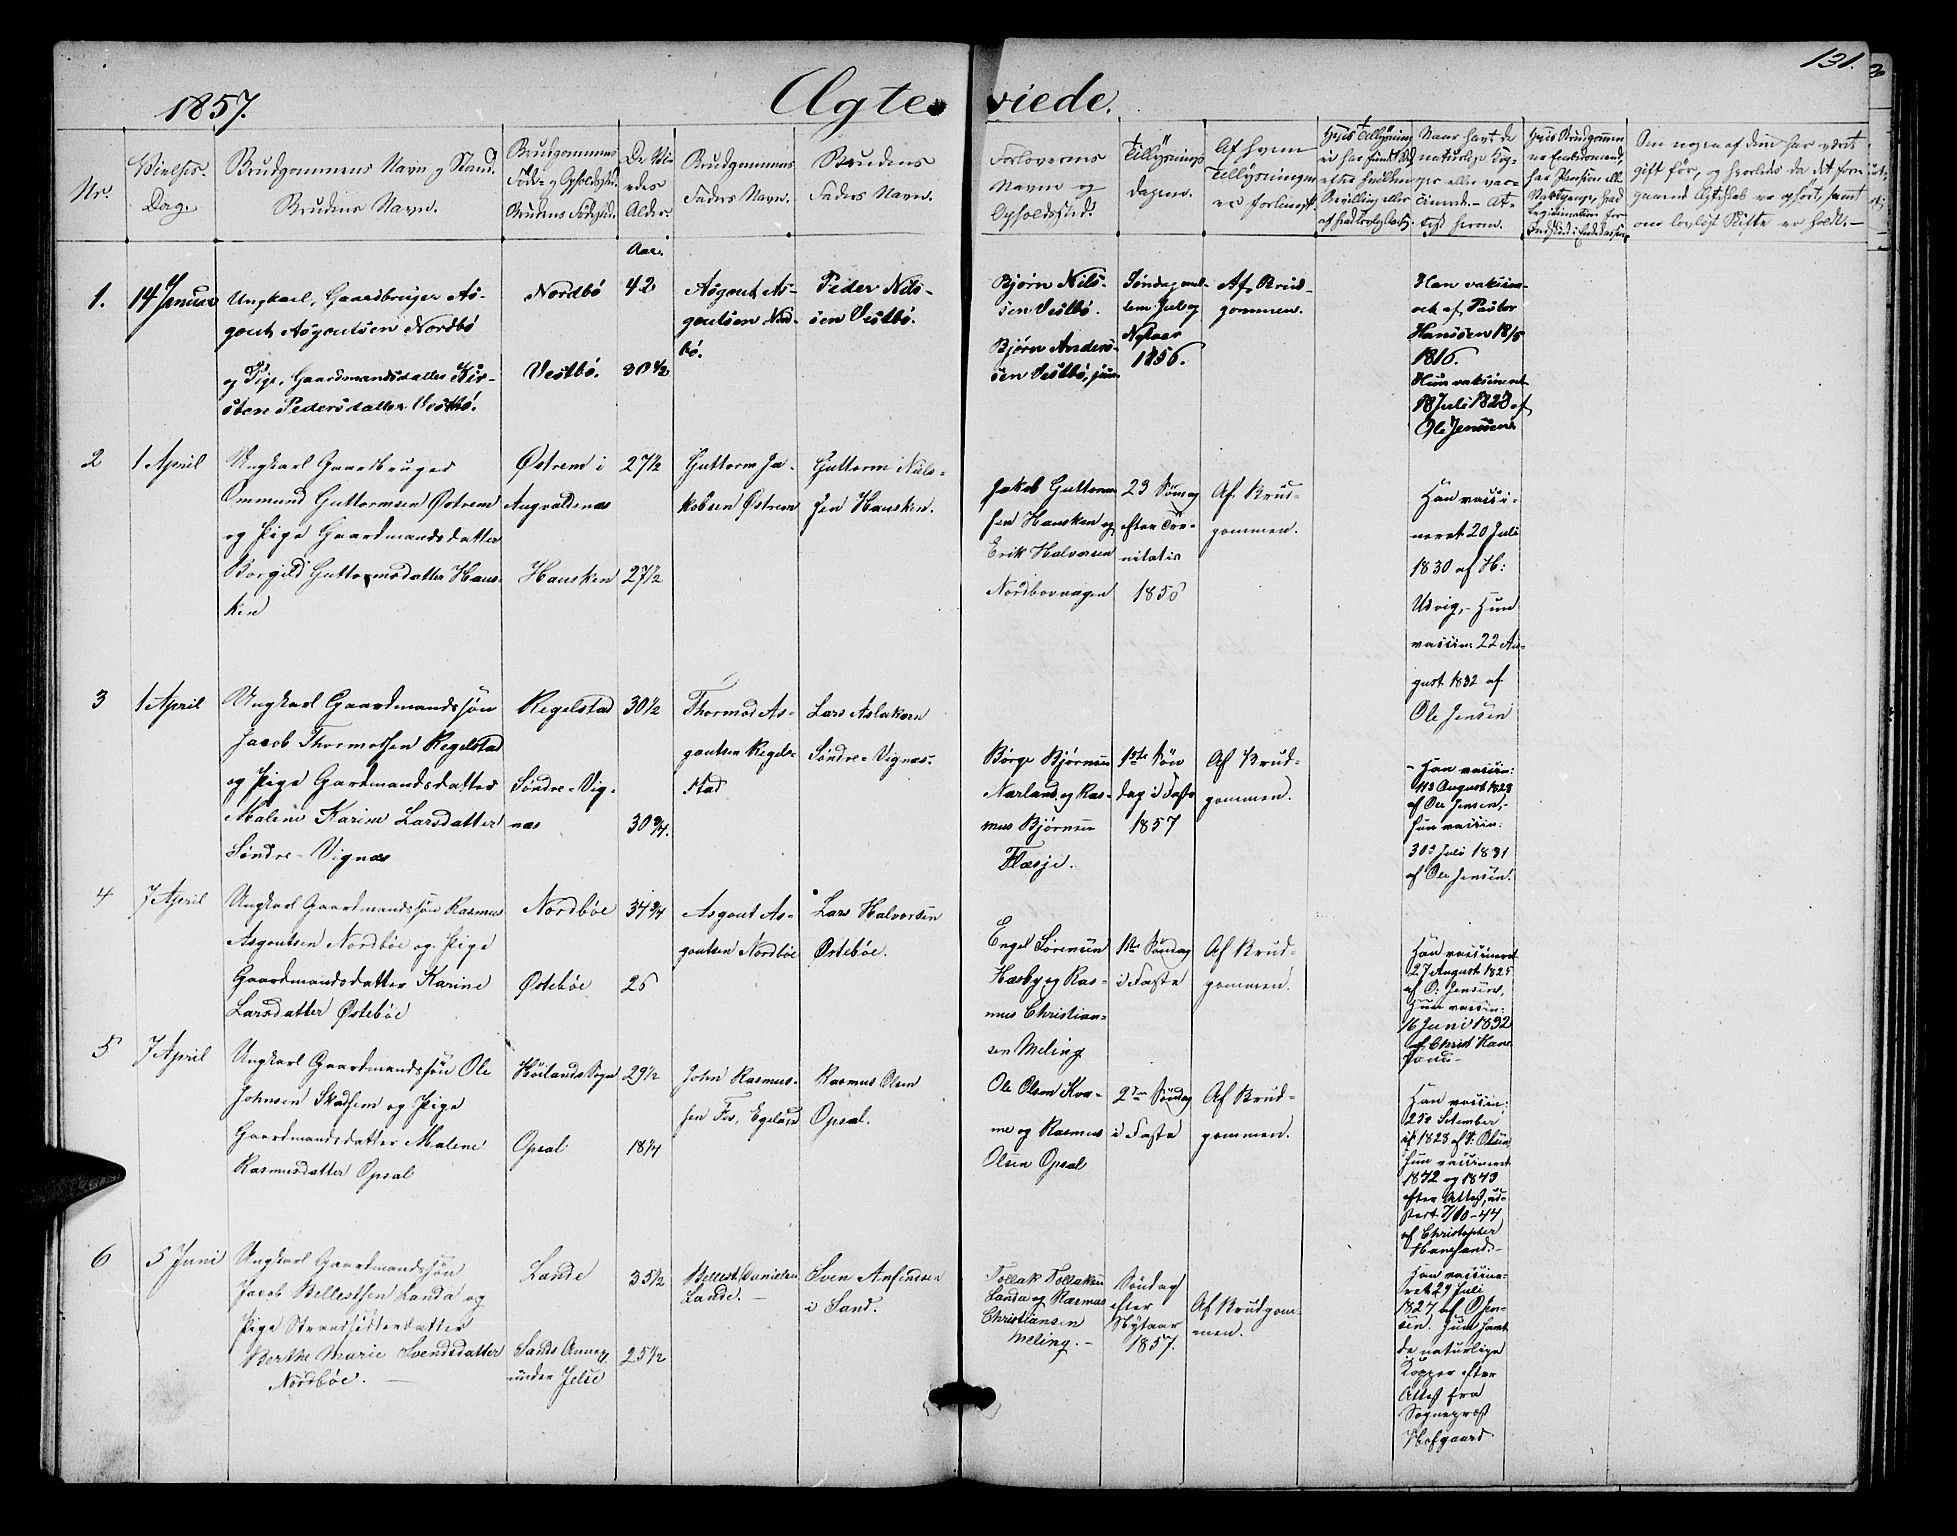 131.
1857. Ægteviede.
Nr.
Vielses-
Dag.
Brudgommens Navn og Stand.
Brudens Navn.
Brudgommens
Føde- og Opholdssted.
Brudens Fødested.
De Vi-
edes
Alder.
Aar.
Brudgommens
Faders Navn.
Brudens
Faders Navn.
Forlovernes
Navne og
Opholdssted.
Tillysnings
dagen.
Af hvem
Tillysningen
er forlangt.
Hvis Tillysning
ei har fundet Sted
efter hvilken
Bevilling eller
Naar havt de
naturlige Kop-
per eller vac-
cinerede. At-
test herom.
Hvis Brudgommen
er Embedsmand,
har Pension eller
Om nogen af dem har været
gift før, og hvorledes da det fore
gaaende Ægteskab er ophørt, samt
om lovligt Skifte er holdt.—
1.
14 Januar
Ungkarl, Gaardbruger As-
gout Asgoutsen Nordbö
og Pige, Gaardmandsdatter Kir-
stene Pedersdatter Vestbö.
Nordbö
Vestbö.
42
30 1/2
Asgout As-
goutsen Nord-
bö.
Peder Nils-
sen Vestbö.
Bjørn Nils-
sen Vestbö.
Bjørn Anders-
sen Vestbö, jun.
Søndag mel-
lem Jul og
Nytaar
1856.
Af Brud-
gommen.
Han vaksine-
ret af Pastor
Hanssen 18/5
1816.
Hun vaksineret
18 Juli 1828 af
Ole Jenssen.
2
1 April
Ungkarl Gaardbruger
Ommund Guttormsen Østrem
og Pige Gaardmandsdatter
Borgild Guttormsdatter Haus-
ken
Østrem i
Augvaldsnæs
Hausken
27 1/2
27 1/2
Guttorm Ja-
kobsen Østrem
Guttorm Niels-
sen Hausken.
Jakob Guttorm-
sen Hausken og
Erik Halvorsen
Nordbovaagen
23 Søndag
efter Tri-
nitatis
1856
Af Brud-
gommen.
Han vacci-
neret 20 Juli
1830 af H:
Udvig, - Hun
vaccin: 22 Au-
gust 1832 af
Ole Jensen
3
1 April
Ungkarl Gaardmandssøn
Jacob Thormodsen Regelstad
og Pige Gardmandsdatter
Malene Karine Larsdatter
Søndre-Vignæs
Regelstad
Søndre-Vig-
næs
30 1/2
30 3/4.
Thormod As-
goutsen Regel-
stad
Lars Aslaksen
Søndre-Vignæs.
Børge Bjørnsen
Nærland og Ras-
mus Bjørnsen
Flæsje.
1ste Søn
dag i Faste
1857
Af Brud-
gommen.
Han vaccin:
August 1828
af Ole Jensen,-
Hun vaccin:
30e Juli 1831
af Ole Jensen.
4
7 April
Ungkarl Gaardmandssøn Rasmus
Asgoutsen Nordböe og Pige
Gaardmandsdatter Karine
Larsdatter Østeböe
Nordböe
Østeböe
34 3/4
26
Asgout As-
goutsen Nordböe
Lars Halvorsen
Østeböe.
Engel Sørensen
Hæsby og Ras-
mus Christian-
sen Meling
1ste Søndag
i Faste
Af Brud-
gommen.
Han vaccineret
27 August 1825
af O: Jensen,
Hun vaccin:
16 Juni 1832
af Christ Hane-
5
7 April
Ungkarl Gaardmandssøn Ole
Johnsen Skadsem og Pige
Gaardmandsdatter Malene
Rasmusdatter Opsal
Höilands Sogn
Opsal
29 1/2
18 1/4
John Rasmus-
sen Egeland
Rasmus Olsen
Opsal.
Ole Olsen Kva-
me og Rasmus
Olsen Opsal
2den Søndag
i Faste
Af Brud-
gommen.
Han vaccin:
25e Setember
1828 af T. Olsen
Hun vaccineret
1842 og 1843
efter Attest, ud-
stedt 7/10-44
af Christopher
Hanesand.-
6
5 Juni
Ungkarl Gaardmandssøn
Jacob Bellestsen Landa og
Pige Strandsidderdatter
Berthe Marie Svendsdatter
Nordböe.
Lande
Sands Annex
under Jelse
35 1/2
25 1/2
Bellest Danielsen
Lande.
Sven Anfindsen
i Sand.
Tollak Tollaksen
Landa og Rasmus
Christiansen
Meling.-
Søndag
efter
Nytaar
1857.
Af Brudgom-
men.
Han vaccine-
ret 29 Juli
1827 af O Jen-
sen. Hun havt
de naturlige
Kopper efter
Attest fra
Sognepræst
Hofgaard